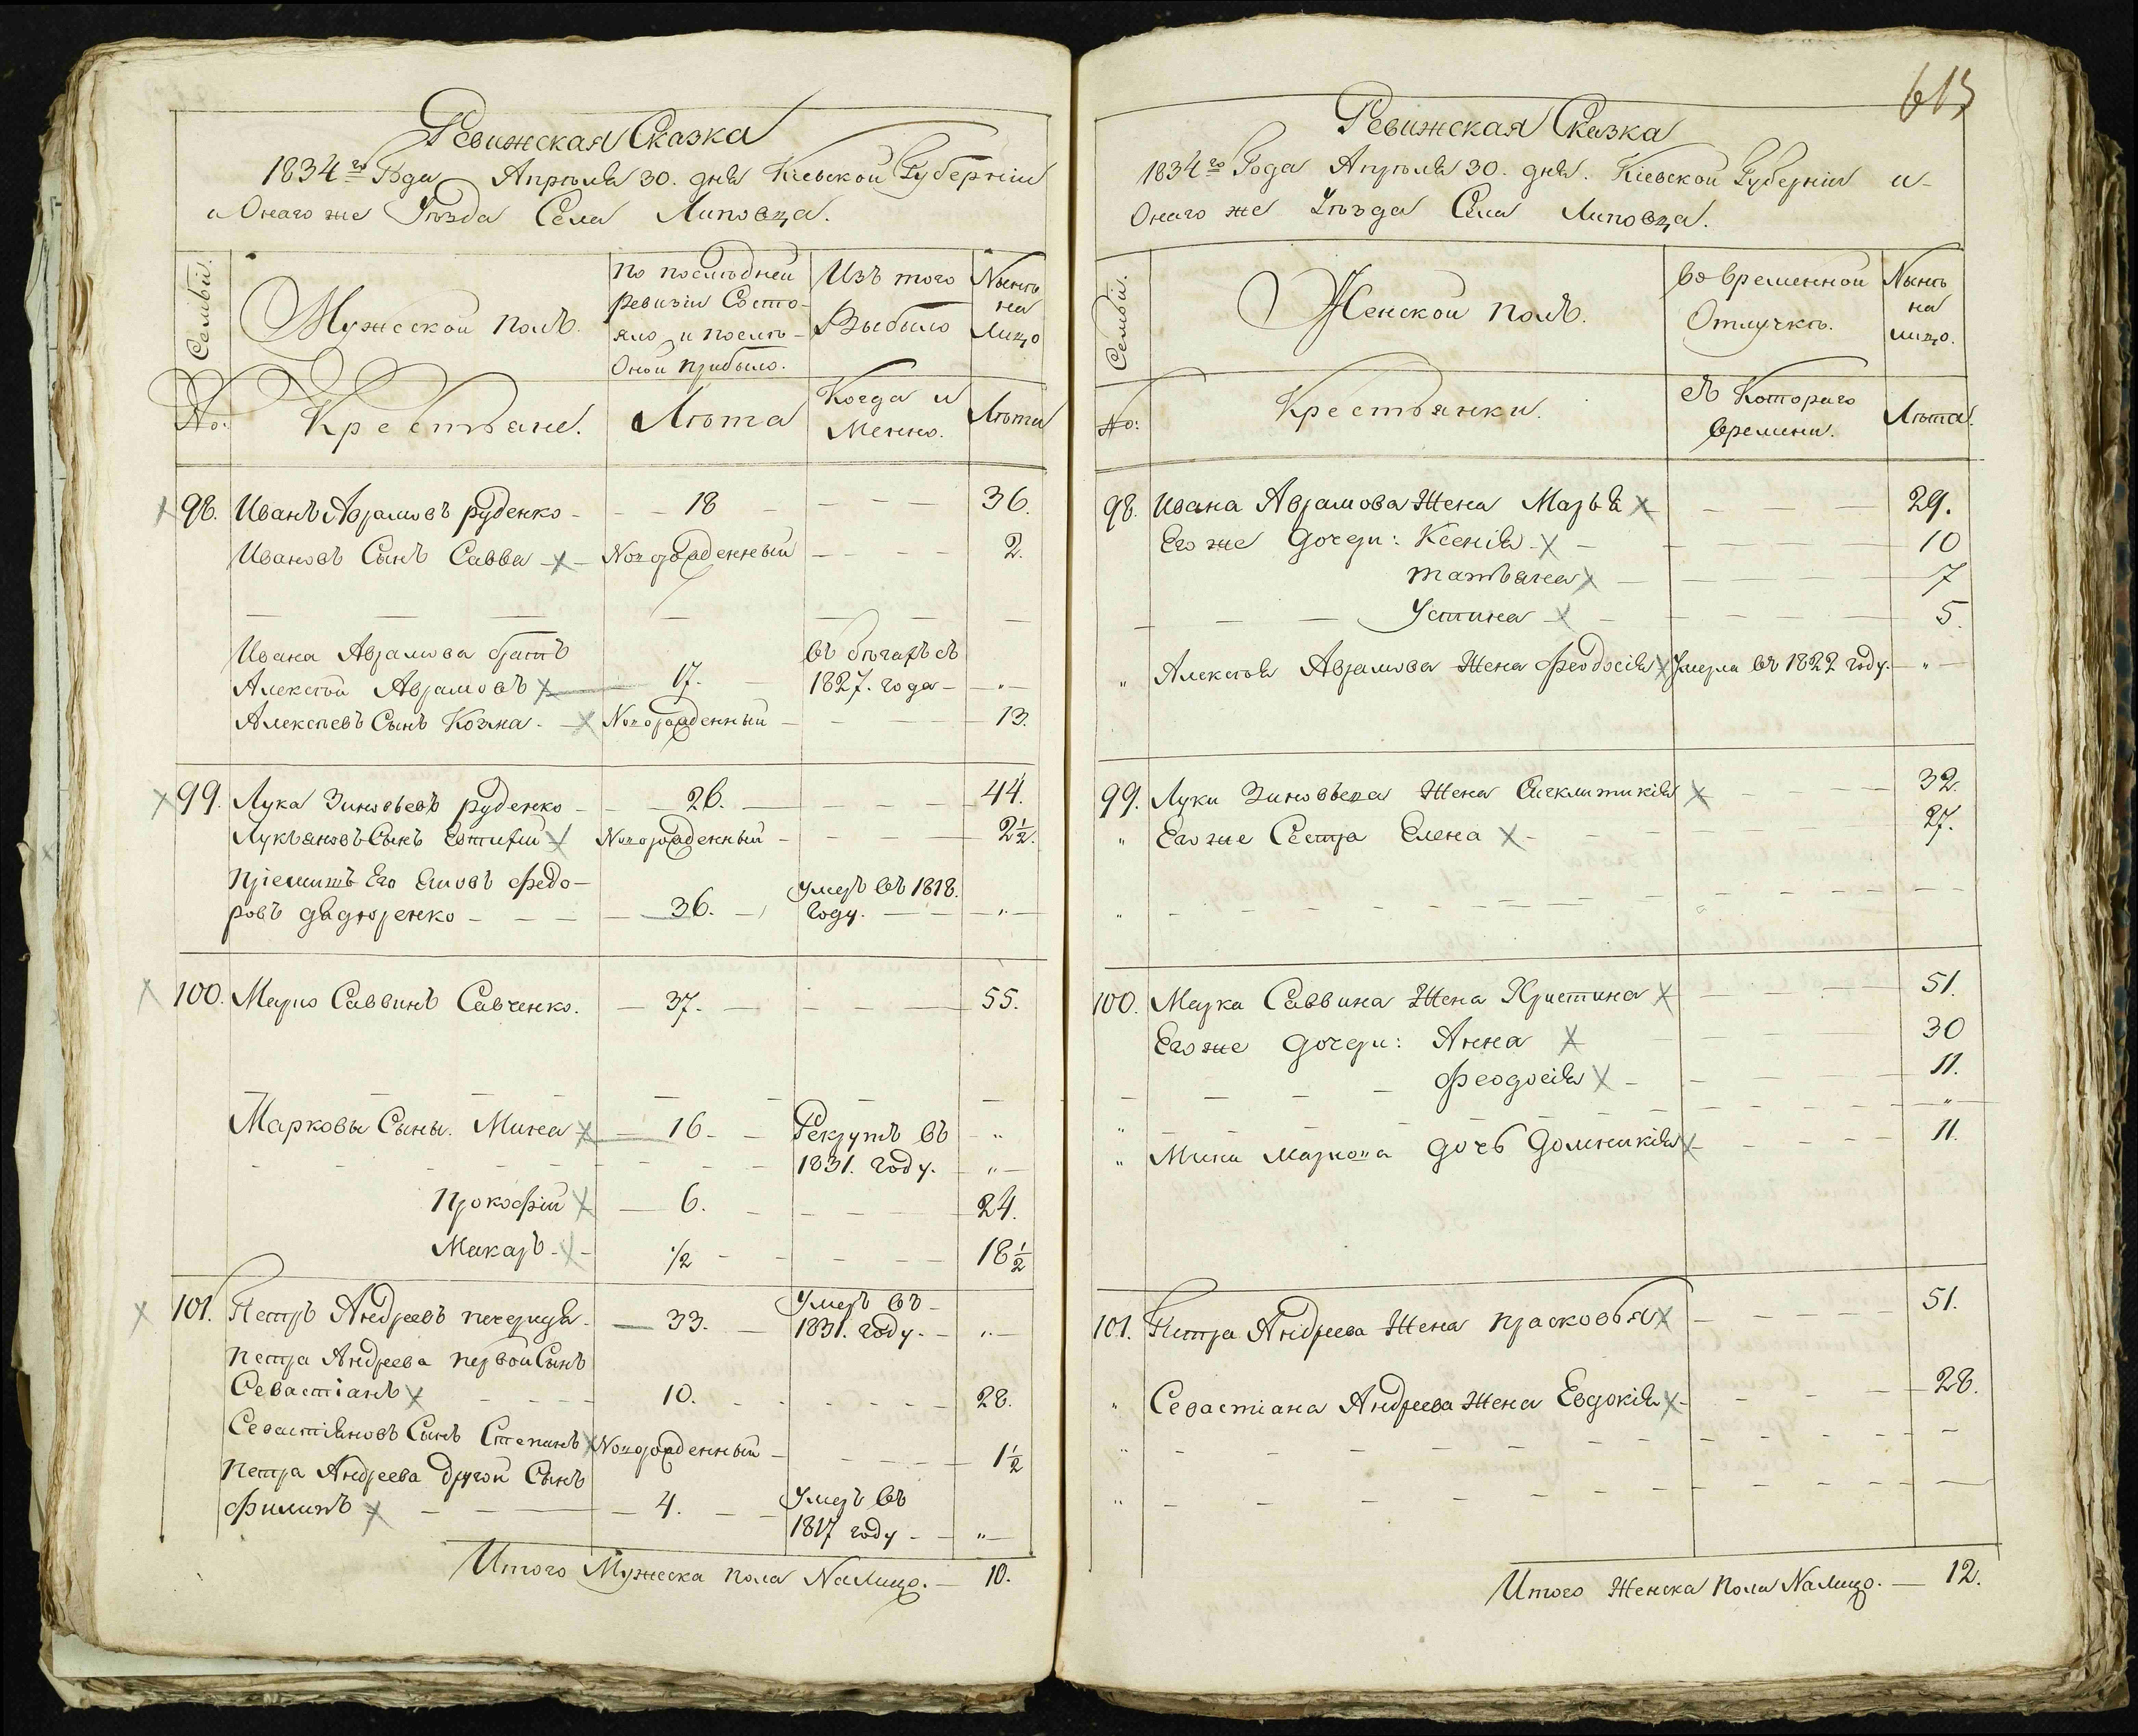 Ревижская Сказка
1834го Года Апрѣля 30. дня Кіевской Губерніи
и Онаго же Уѣзда Села Липовца.
Семьи.
Мужеской полъ.
по послѣдней
ревизіи Состо-
яло и послѣ
Оной прибыло.
Изъ того
Выбыло
Нынѣ
на
Лицо
No:
Крестьяне.
Лѣта
Когда и
Менно.
Лѣта
98. Иванъ Аврамовъ руденко - 18 - 36.
Ивановъ Сынъ Савва - Новорожденный - 2.
Ивана Аврамова братъ
Алексѣй Аврамовъ 17. въ бѣгахъ съ 1827. года - „
Алексѣевъ Сынъ Козма. Новорожденный - 13.
99. Лука Зиновьевъ руденко - 26. - 44.
Лукьяновъ Сынъ Евтифій Новорожденный - 2½.
Пріемышъ Его Яковъ Федо-
ровъ дядюренко - 36. - Умеръ въ 1818. году. - „
100. Марко Саввинъ Савченко. - 37. - 55.
Марковы Сыны. Мина - 16 - Рекрутъ въ - „
1831. году. - „
Прокофій - 6. - 24.
Макаръ - ½ - 18½
101. Петръ Андреевъ печерица - 33. - Умеръ въ -
1831. году. - „
Петра Андреева первой Сынъ
Севастіанъ - 10. - 28.
Севастіяновъ Сынъ Степанъ Новорожденный - 1½
Петра Андреева другой Сынъ
Филипъ - 4. - Умеръ въ
1817 году - „
Итого Мужеска пола На Лицо. - 10.
613
Ревижская Сказка
1834го Года Апрѣля 30. дня. Кіевской Губерніи и
Онаго же Уѣзда Села Липовца.
Семьи.
Женской полъ.
во временной
Отлучкѣ.
Нынѣ
на
лицо.
No:
Крестьянки.
съ Котораго
времени.
Лѣта.
98. Ивана Аврамова Жена Марья - 29.
Его же дочери: Ксенія - 10
татьяна - 7
Устина - 5.
„ Алексѣя Аврамова Жена Феодосія Умерла въ 1822 году. - „
99. Луки Зиновьева Жена - 32.
„ Его же Сестра Елена - 27.
100. Марка Саввина Жена Христина - 51.
Его же дочери: Анна 30
Феодосія - 11.
„ Мины Маркова дочь Домникія - 11.
101. Петра Андреева Жена Прасковья - 51.
„ Севастіана Андреева Жена Евдокія - 28.
Итого Женска Пола На Лицо. - 12.